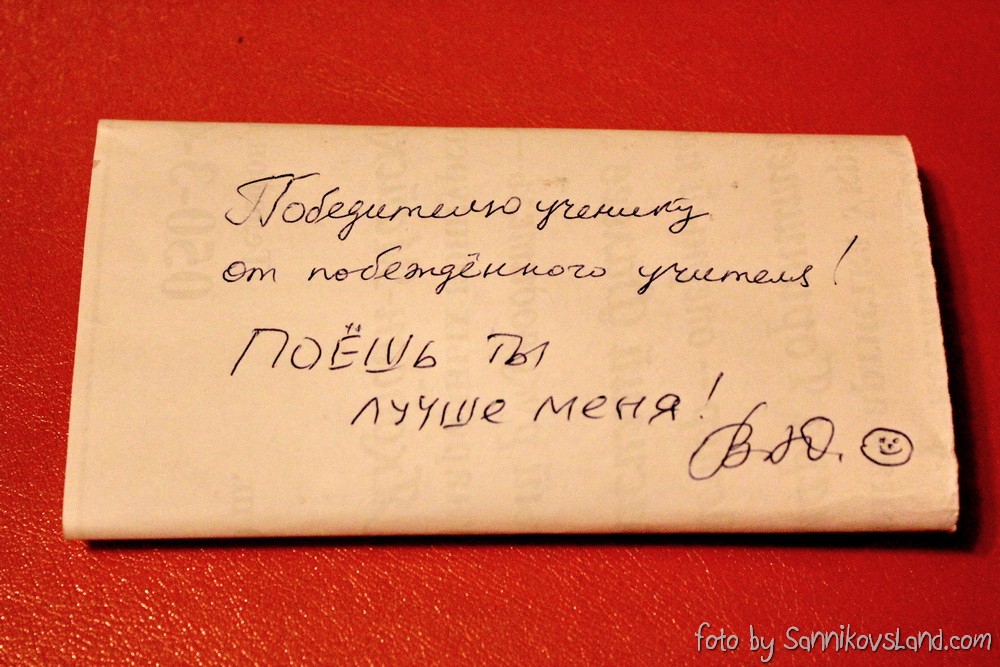 Победителю ученику
от побеждённого учителя!
ПОЁШЬ ТЫ
ЛУЧШЕ МЕНЯ!
В.Ю.
050-3
foto by SannikovsLand.com